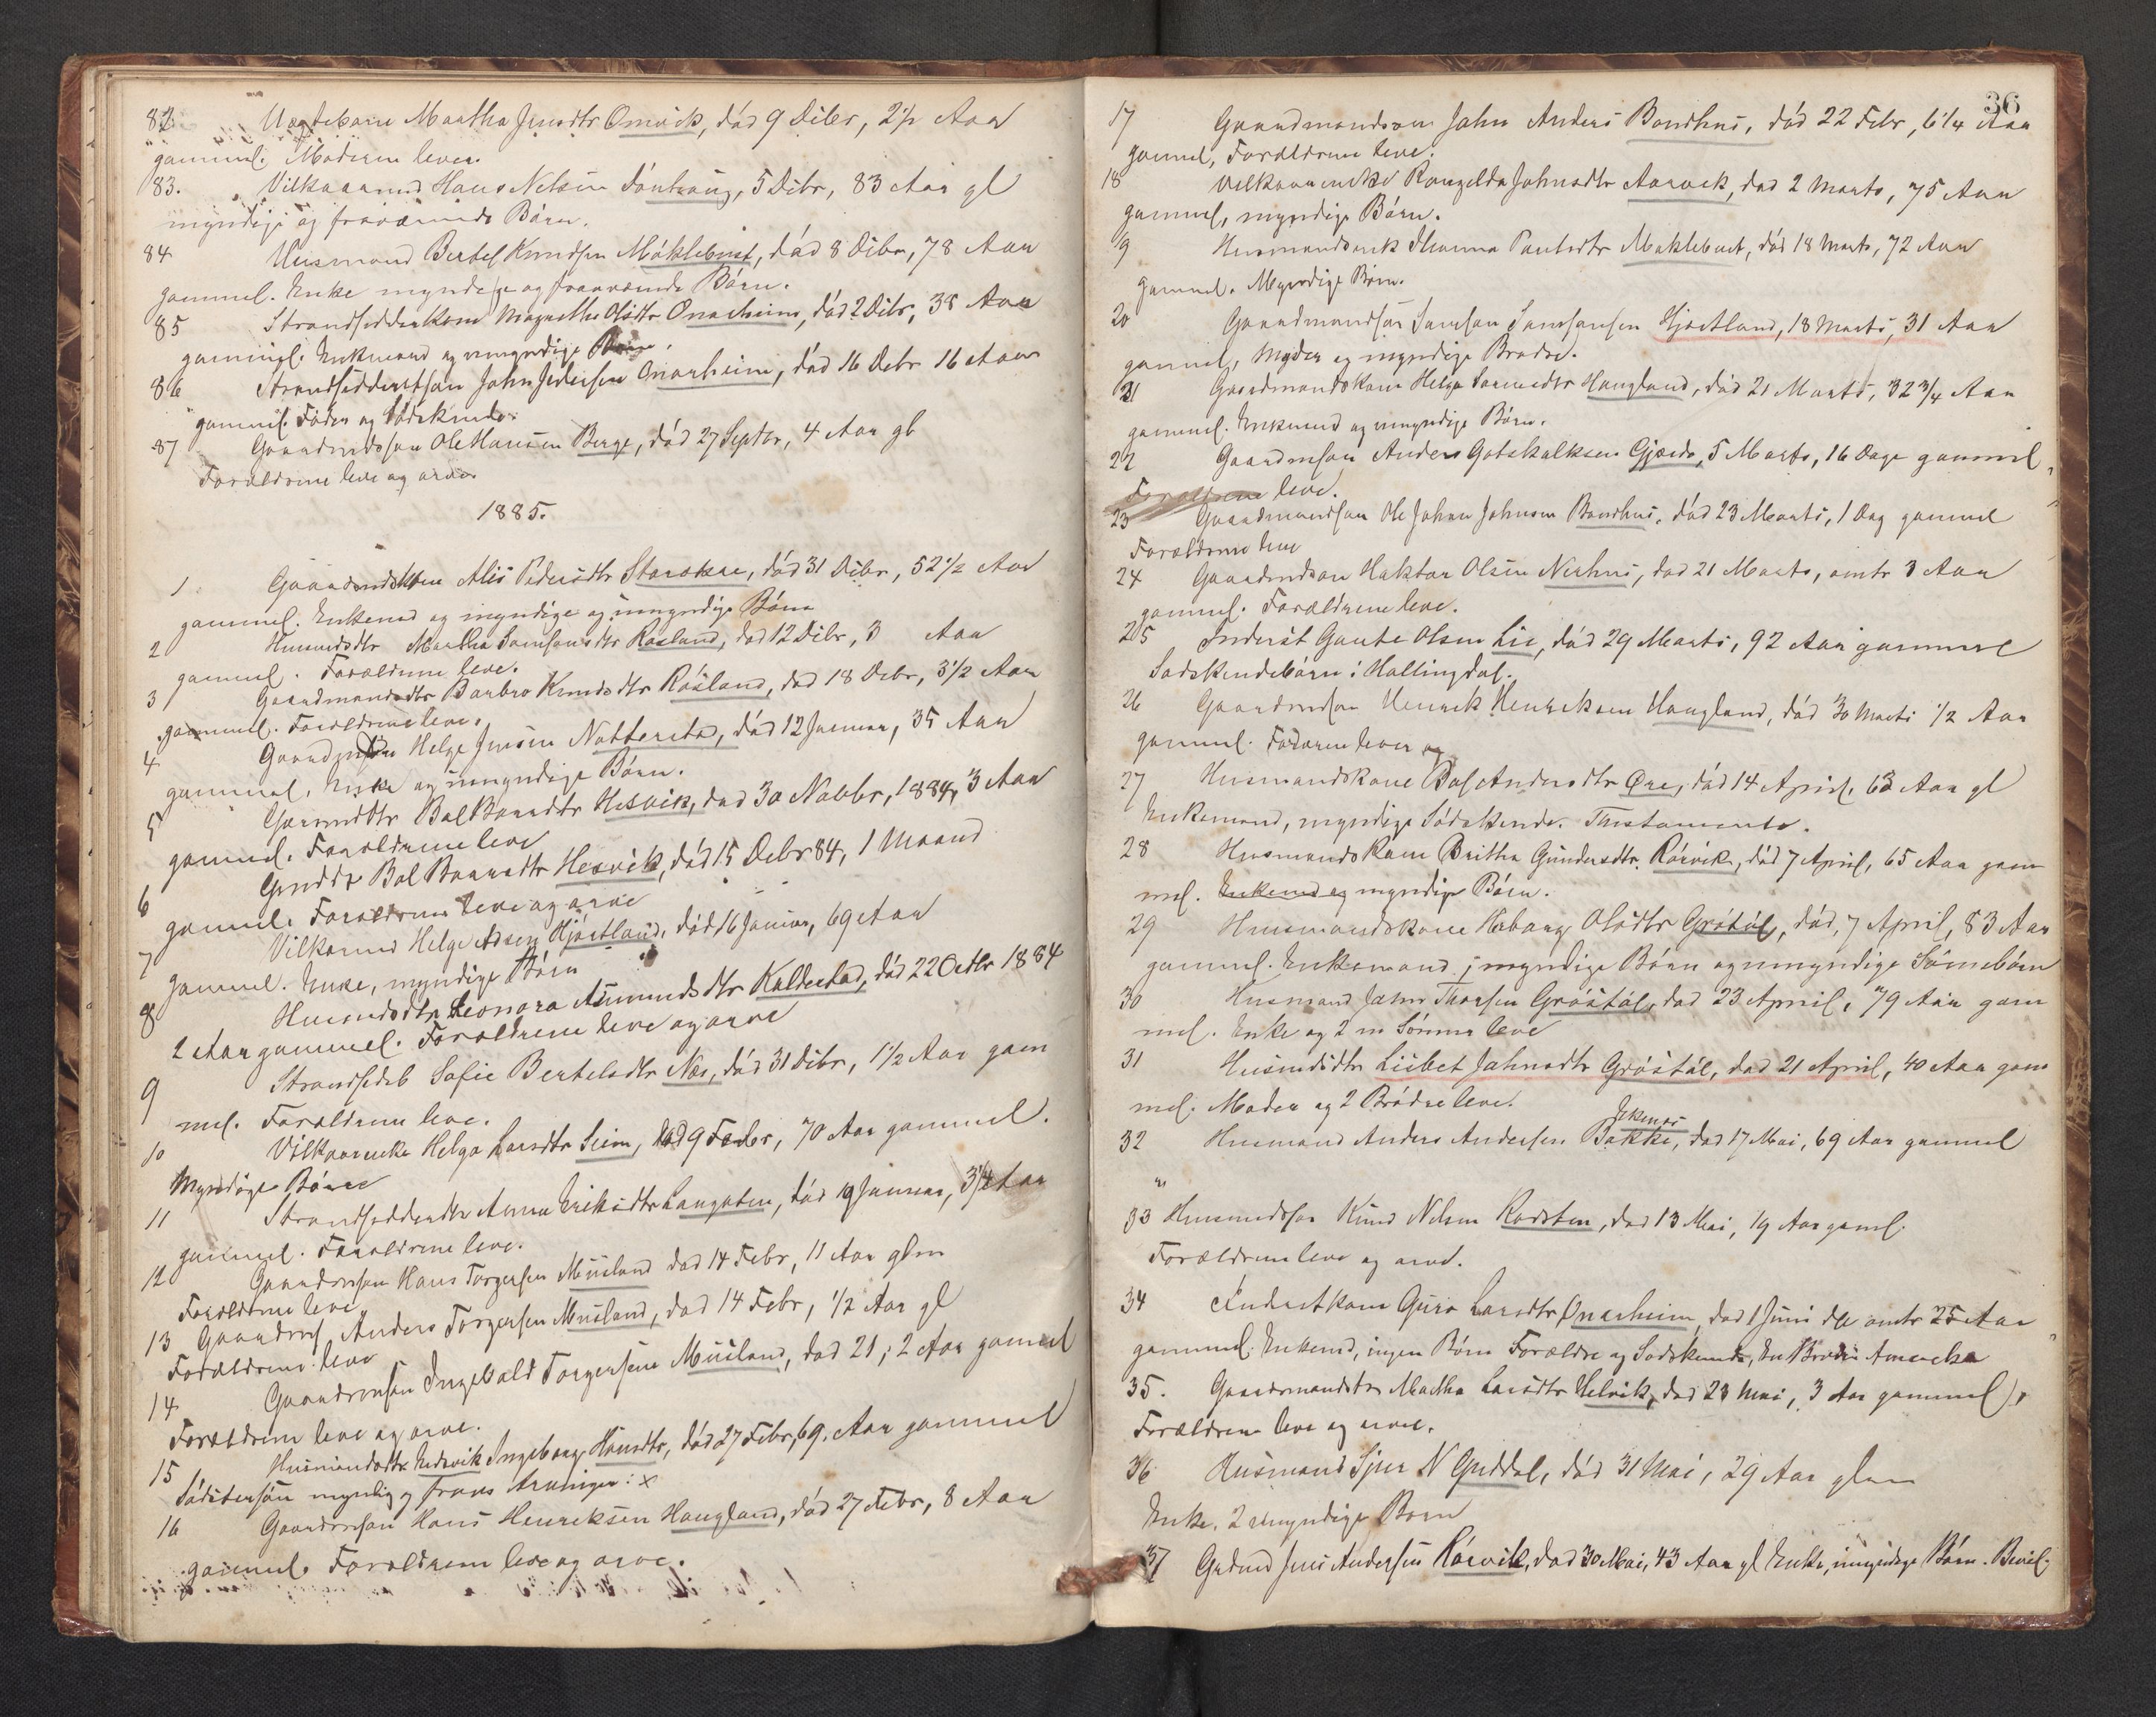 82 Uægtebarn Martha Jensdtr Omvik, død 9 Dcbr, 2 1/2 Aar
gammel. Moderen lever.
83. Vilkaarmd Hans Nelsen, 5 Dcbr, 83 Aar gl
myndige og fraværende Børn.
84 Husmand Bertel Knudsen Møklebust, død 8 Dcbr, 78 Aar
gammel. Enke myndige og fraværende Børn.
85 Strandsidderkone Magrethe Olsdtr Onarheim, død 2 Dcbr, 38 Aar
gammel. Enkemand og umyndige Børn.
86 Strandsiddersøn John Onarheim, død 16 Debr 16 Aar
gammel. Fader og Sødskende.
87 Gaardmdssøn Ole Hansen Berge, død 27 Septbr, 4 Aar gl
Forældrene leve og arve.
1885.
1 Gaardmdskone Alis Pedersdtr Starokre, død 31 Dcbr, 52 1/2 Aar
gammel. Enkemd og myndige og umyndige Børn
2 Husmdsdtr Martha Samsonsdtr Røsland, død 12 Dcbr, 3 Aar
gammel. Forældrene leve.
3 Gaardmandsdtr Barbro Knudsdtr Røsland, død 18 Debr, 3 1/2 Aar
gammel. Forældrene leve.
4 Helge Jensen Nattersta, død 12 Januar, 35 Aar
gammel. Enke og umyndige Børn.
5 Gaarmddtr Bol Baarsdtr Hesvik, død 30 Novbr, 1884, 3 Aar
gammel. Forældrene leve
6 Gmddtr Bol Baarsdtr Hesvik, død 15 Debr 84, 1 Maand
gammel. Forældrene leve og arve
7 Vilkarmd Helge Hjørtland, død 16 Januar, 69 Aar
gammel. Enke, myndige Børn
8 Husmdsdtr Leonora Aamundsdtr Kaldestad, død 22 Octbr 1884
2 Aar gammel. Forældrene leve og arve
9 Strandsidrb Sofie Bertelsdtr Næs, død 31 Dcbr, 1 1/2 Aar gam
mel. Forældrene leve.
10 Vilkaarenke Helga Larsdtr Seim, død 9 Febr, 70 Aar gammel.
Myndige Børn
11 Strandsidderdtr Anna Eriksdtr Langaten, død 19 Januar, 3 1/4 Aar
gammel. Forældrene leve.
12 Gaardmssøn Hans Torgersen Musland død 14 Febr, 11 Aar glm
Forældrene leve
13 Gaardms Anders Torgersen Musland, død 14 Febr, 1/2 Aar gl
Forældrene leve
14 Gaardmssøn Ingebald Torgersen Musland, død 21, 2 Aar gammel
Forældrene leve og arve.
15 Husmandsdtr Indrevik Ingeborg Hansdtr, død 27 Febr, 69 Aar gammel
Sødstersøn myndig og Arvinger: x
16 Gaardmssøn Hans Henriksen Haugland, død 27 Febr, 8 Aar
gammel. Forældrene leve og arve.
36
17 Gaardmandssøn John Anders Bondhus, død 22 Febr, 6 1/4 Aar
gammel, Forældrene leve.
18 Vilkaarenke Rangelda Johnsdtr Aarvik, død 2 Marts, 75 Aar
gammel, myndige Børn.
19 Husmandsenk Johanna Møklebust, død 18 Marts, 72 Aar
gammel. Myndige Børn.
20 Gaardmandsøn Samson Samsonsen Hjørtland, 18 Marts, 31 Aar
gammel, Moder og myndige Brødre.
21 Gaardmandskone Helga Haugland, død 21 Marts, 32 3/4 Aar
gammel. Enkemd og umyndige Børn.
22 Gaardmsøn Anders Gotskalksen Gjærde, 5 Marts, 16 Dage gammel,
Forældrene leve.
23 Gaardmandsøn Ole Johan Johnsen Bondhus, død 23 Marts, 1 Dag gammel
Forældrene leve
24 Gaardmdsøn Haktor Olsen Nerhus, død 21 Marts, omtr 3 Aar
gammel. Forældrene leve.
25 Inderst Gaute Olsen Lie, død 29 Marts, 92 Aar gammel
Sødskendebørn i Hallingdal.
26 Gaardmsøn Henrik Henriksen Haugland, død 30 Marts 1/2 Aar
gammel. Faderen lever og
27 Husmandskone Bol Andersdtr Øre, død 14 April, 63 Aar gl
Enkemand, myndige Sødskende. Thestamente.
28 Husmandskone Britha Gundersdtr Rørvik, død 7 April, 65 Aar gam
mel. Enkemd og myndige Børn.
29 Husmandskone Herborg Olsdtr Grøtøl, død, 7 April, 83 Aar
gammel. Enkemand, myndige Børn og umyndige Sønnebørn
30 Husmand Thorsen Grøstøl, død 23 April, 79 Aar gam
mel. Enke og 2 Sønner leve
31 Husmdsdtr Lisbet Johnsdtr Grøstøl, død 21 April, 40 Aar gam
mel. Moder og 2 Brødre leve.
32 Husmand Anders Andersen Bakke, død 17 Mai, 69 Aar gammel
"
33 Husmdssøn Knud Nelsen Radsten, død 13 Mai, 19 Aar gaml.
Forældrene leve og arve.
34 Inderstkone Guro Larsdtr Onarheim, død 1 Juni omtr 25 Aar
gammel. Enkemd, ingen Børn Forældre og Sødskende, En Broder Amerika
35. Gaardmandsdtr Martha Larsdtr Helvik, død 23 Mai, 3 Aar gammel,
Forældrene leve og arve.
36 Husmand Sjur N Guddal, død 31 Mai, 29 Aar glm
Enke. 2 umyndige Børn
37 Grdmd Jens Andersen Rørvik, død 30 Mai, 43 Aar gl Enke, umyndige Børn. Bevil.